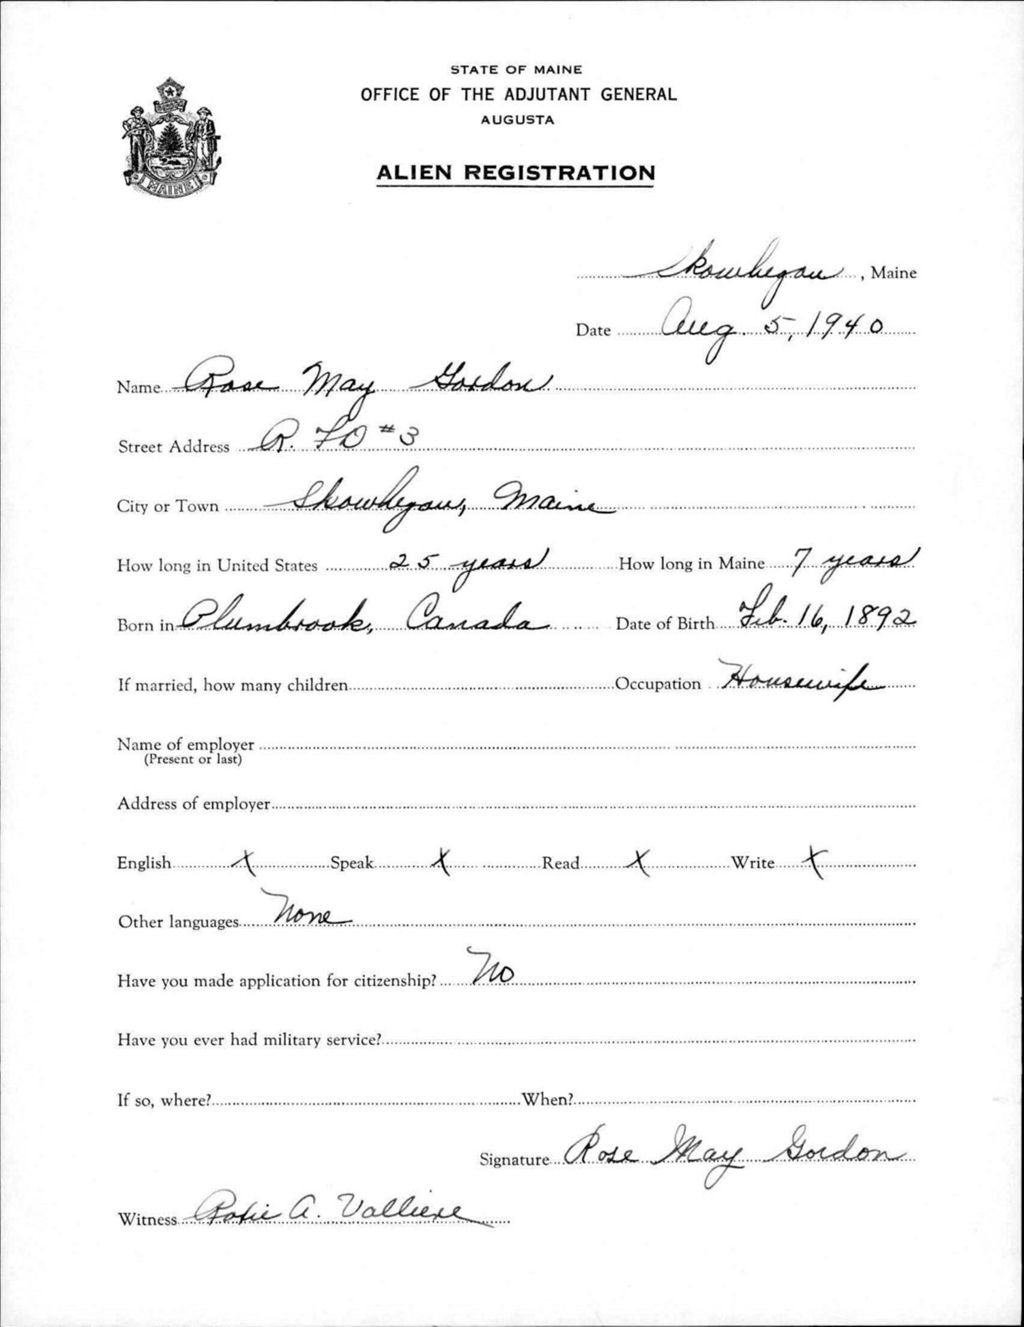 STATE OF MAINE
OFFICE OF THE ADJUTANT GENERAL
AUGUSTA
ALIEN REGISTRATION
MAINE
Skowhegan, Maine
Date Aug. 5, 1940
Name Rose May Gordon
Street Address R. FD #3
City or Town Skowhegan, Maine
How long in United States 25 years How long in Maine 7 years
Born in Plumbrook, Canada Date of Birth Feb. 16, 1892
If married, how many children Occupation Housewife
Name of employer
(Present or last)
Address of employer
English X Speak X Read X Write X
Other languages None
Have you made application for citizenship? No
Have you ever had military service?
If so, where? When?
Signature Rose May Gordon
Witness A. Valliere